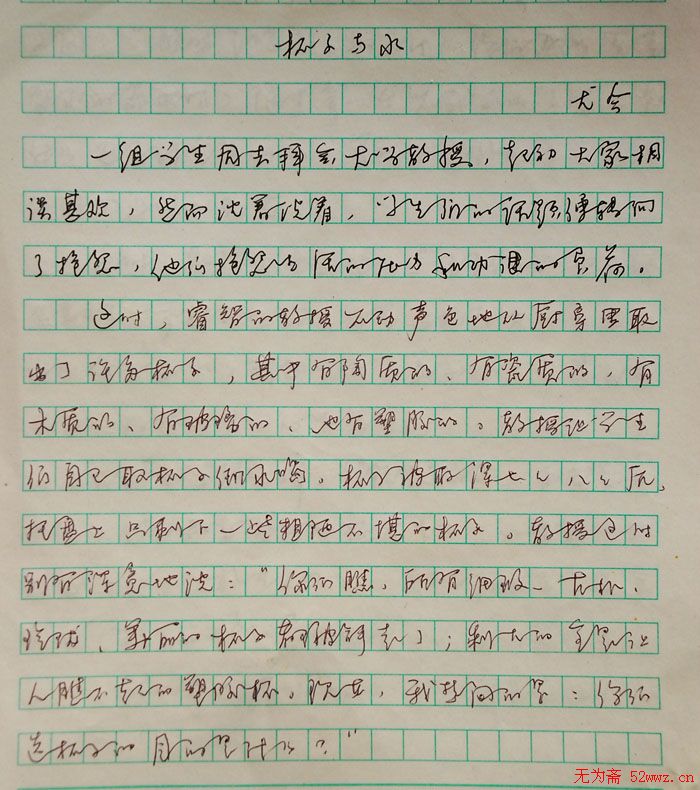 杯子与水
尤今
一组学生同去拜会大学教授，起初大家相
谈甚欢，然而谈着谈着，学生们的话题便转向
了抱怨，他们抱怨生活的压力和功课的负荷。
这时，睿智的教授不动声色地从厨房里取
出了许多杯子，其中有陶质的、有瓷质的，有
木质的、有玻璃的、也有塑胶的。教授让学生
们自己取杯子倒水喝。杯子被取得七七八八后，
托盘上只剩下一些粗陋不堪的杯子。教授这时
别有深意地说：“你们瞧，所有细致、古朴、
玲珑、美丽的杯子都被拿走了；剩下的全是让
人瞧不起的塑胶杯。现在，我想问的是：你们
选杯子的目的是什么？”
无为斋 52wwz.cn